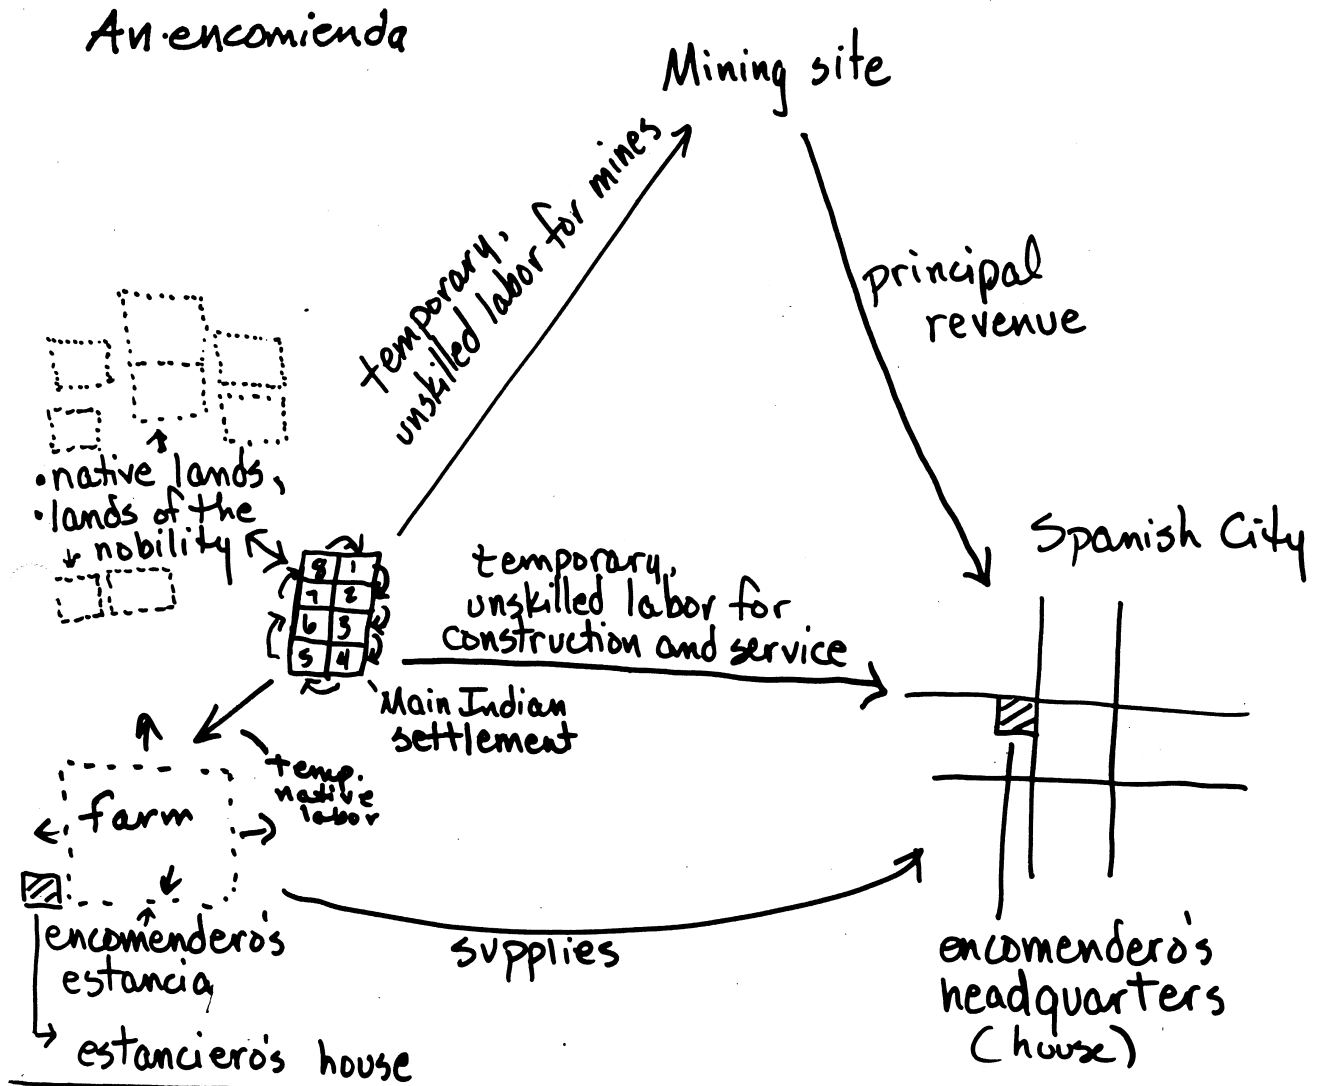 An encomienda
Mining site
temporary,
unskilled labor for mines
principal
revenue
• native lands,
• lands of the
nobility
8 1
7 2
6 3
5 4
temporary,
unskilled labor for
construction and service
Spanish City
Main Indian
settlement
temp.
native
labor
farm
encomendero's
estancia
estanciero's house
supplies
encomendero's
headquarters
(house)